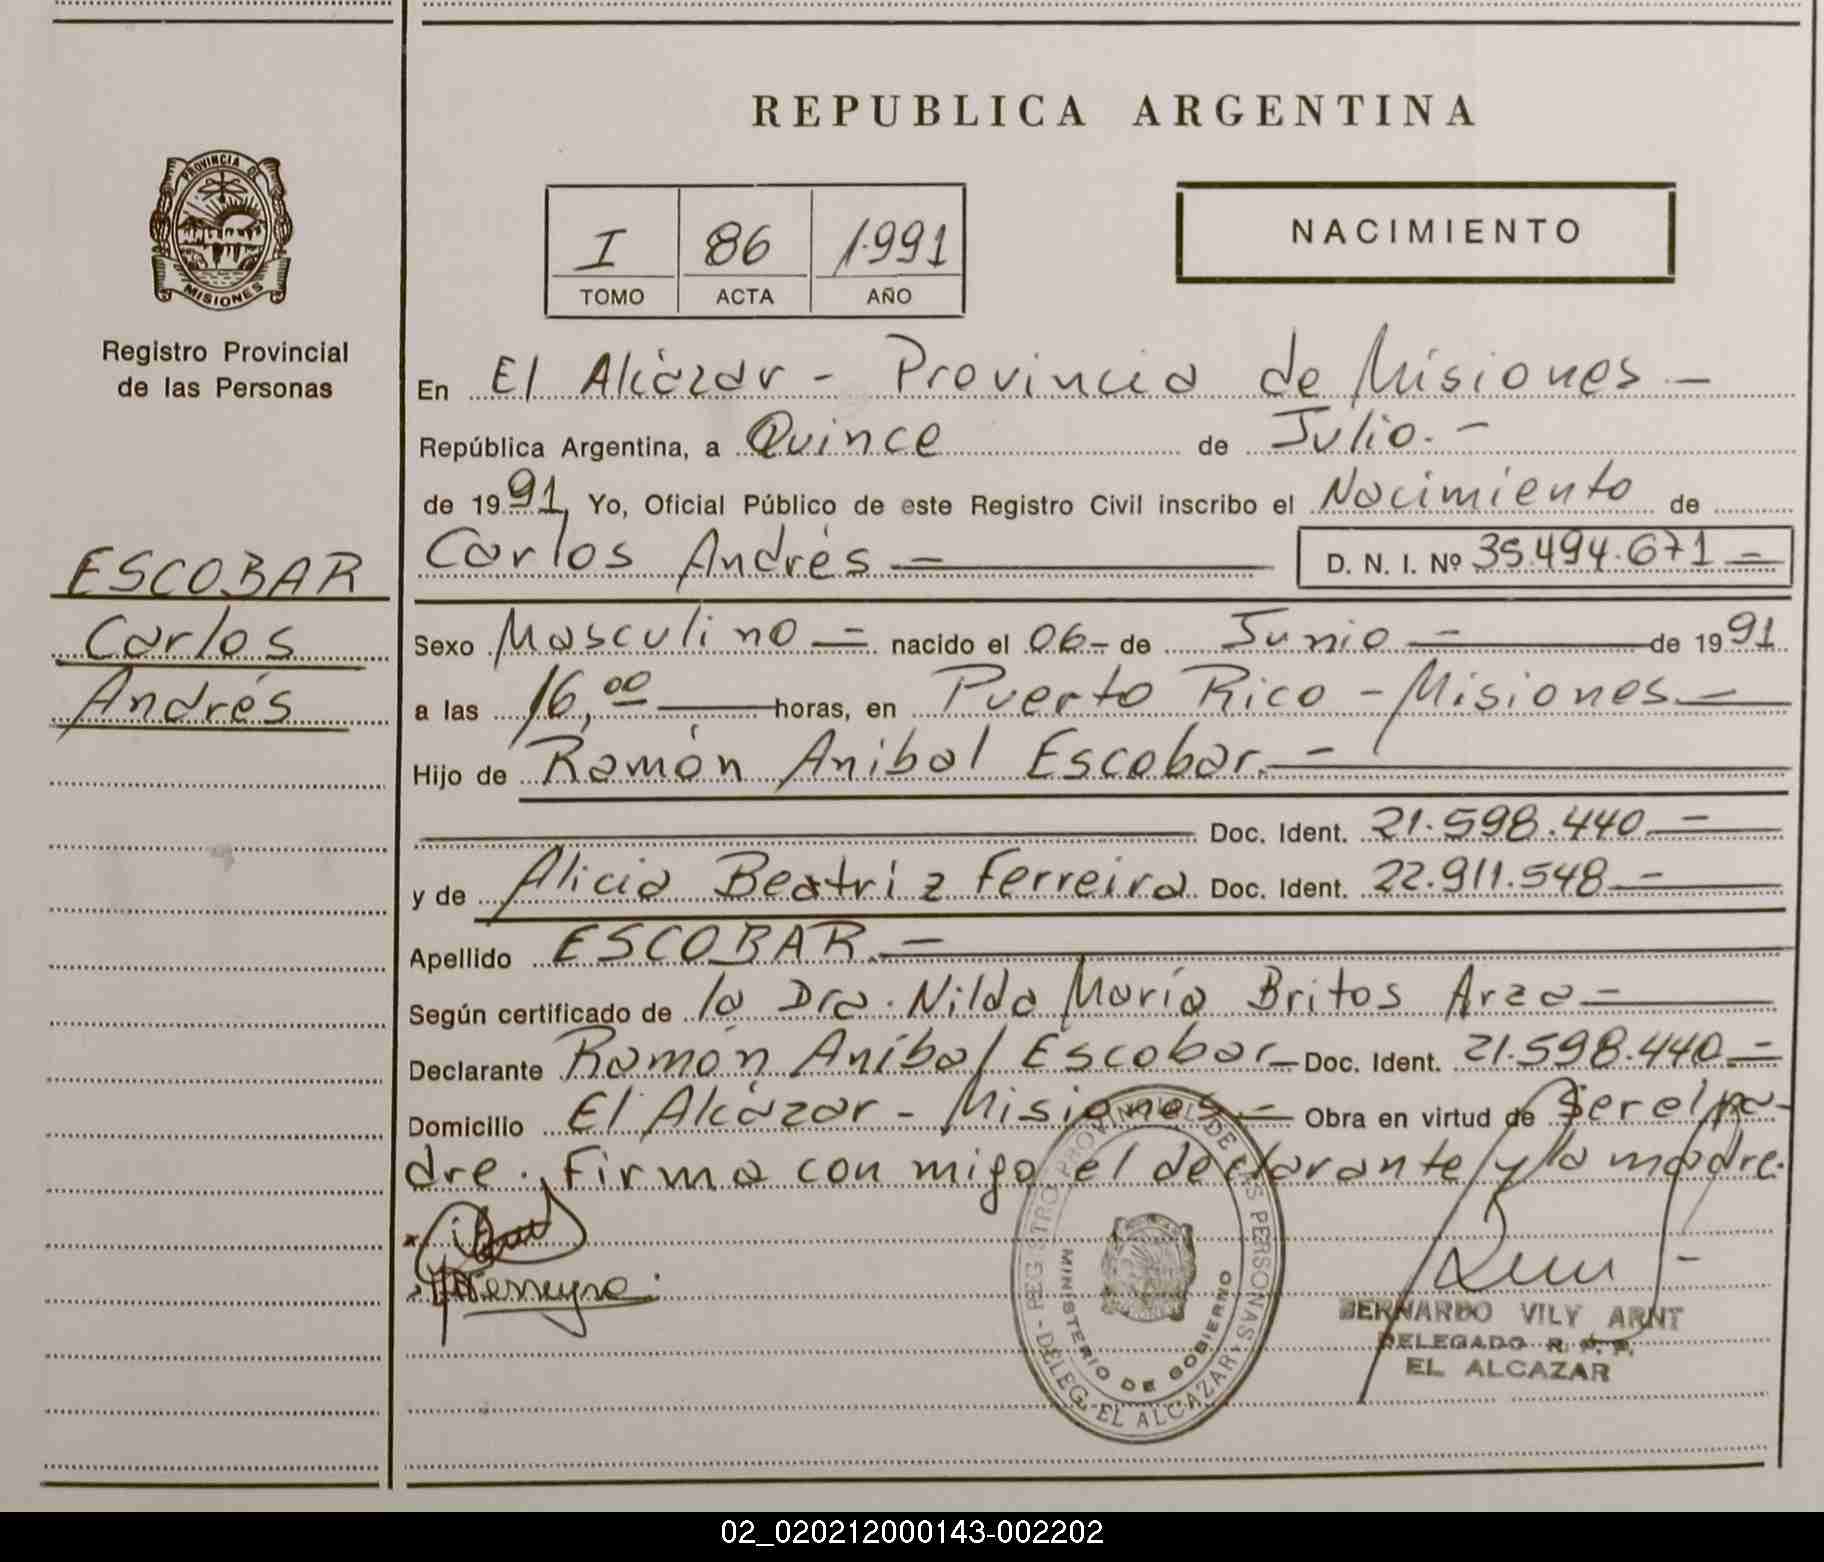 REPUBLICA ARGENTINA
PROVINCIA DE
MISIONES
Registro Provincial
de las Personas
ESCOBAR
Carlos
Andrés
I 86 1991
TOMO ACTA AÑO
NACIMIENTO
En El Alcázar - Provincia de Misiones -
República Argentina, a Quince de Julio. -
de 1991 Yo, Oficial Público de este Registro Civil inscribo el Nacimiento de
Carlos Andrés - D. N. I. Nº 35.494.671 -
Sexo Masculino - nacido el 06 - de Junio - de 1991
a las 16,00 horas, en Puerto Rico - Misiones -
Hijo de Ramón Anibal Escobar. -
Doc. Ident. 21.598.440 -
y de Alicia Beatriz Ferreira Doc. Ident. 22.911.548 -
Apellido ESCOBAR. -
Según certificado de la Dra. Nilda María Britos Arza -
Declarante Ramón Aníbal Escobar - Doc. Ident. 21.598.440 -
Domicilio El Alcázar - Misiones - Obra en virtud de Ser el pa-
dre. Firma con migo el declarante y la madre.
REGISTRO PROVINCIAL DE LAS PERSONAS
MINISTERIO DE GOBIERNO
DELEG. EL ALCAZAR
BERNARDO VILY ARNT
DELEGADO R. P. P.
EL ALCAZAR
02_020212000143-002202